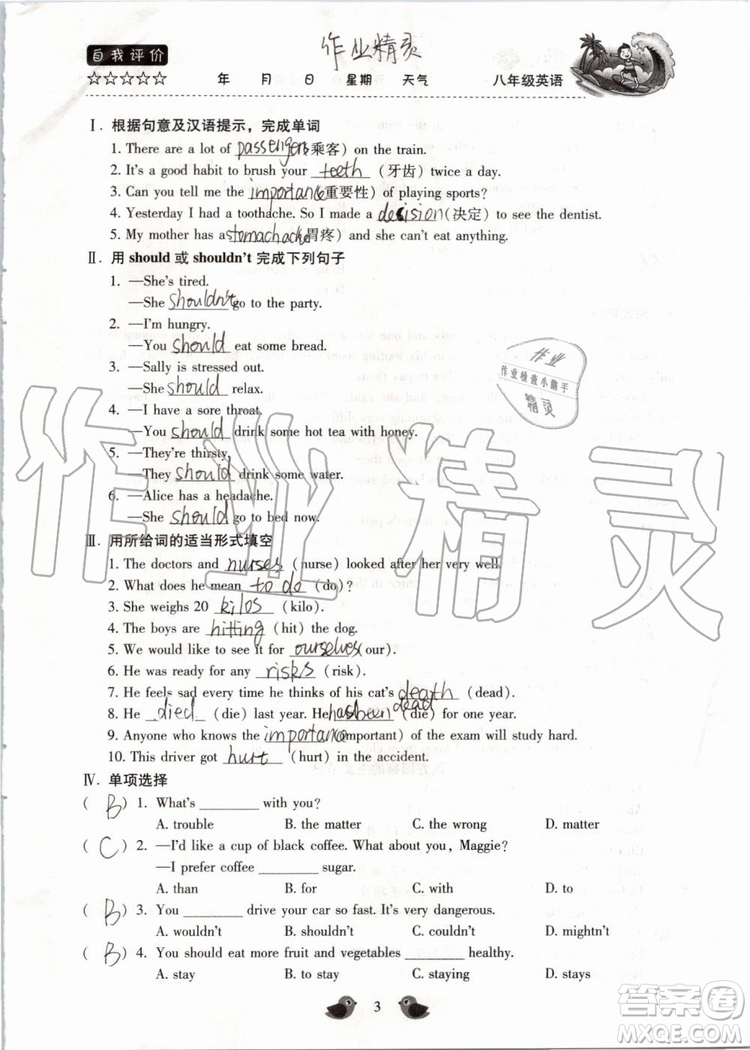 自我评价
作业精灵
☆☆☆☆☆ 年 月 日 星期 天气 八年级英语
Ⅰ. 根据句意及汉语提示，完成单词
1. There are a lot of passengers(乘客) on the train.
2. It's a good habit to brush your teeth (牙齿) twice a day.
3. Can you tell me the importance(重要性) of playing sports?
4. Yesterday I had a toothache. So I made a decision(决定) to see the dentist.
5. My mother has a stomachache(胃疼) and she can't eat anything.
Ⅱ. 用 should 或 shouldn't 完成下列句子
1. —She's tired.
—She shouldn't go to the party.
2. —I'm hungry.
—You should eat some bread.
3. —Sally is stressed out.
—She should relax.
4. —I have a sore throat.
—You should drink some hot tea with honey.
5. —They're thirsty.
—They should drink some water.
6. —Alice has a headache.
—She should go to bed now.
Ⅲ. 用所给词的适当形式填空
1. The doctors and nurses (nurse) looked after her very well.
2. What does he mean to do (do)?
3. She weighs 20 kilos (kilo).
4. The boys are hitting (hit) the dog.
5. We would like to see it for ourselves(our).
6. He was ready for any risks (risk).
7. He feels sad every time he thinks of his cat's death (dead).
8. He died (die) last year. He has been dead (die) for one year.
9. Anyone who knows the importance(important) of the exam will study hard.
10. This driver got hurt (hurt) in the accident.
Ⅳ. 单项选择
( B ) 1. What's ________ with you?
A. trouble B. the matter C. the wrong D. matter
( C ) 2. —I'd like a cup of black coffee. What about you, Maggie?
—I prefer coffee ________ sugar.
A. than B. for C. with D. to
( B ) 3. You ________ drive your car so fast. It's very dangerous.
A. wouldn't B. shouldn't C. couldn't D. mightn't
( B ) 4. You should eat more fruit and vegetables ________ healthy.
A. stay B. to stay C. staying D. stays
3
作业
作业检查小能手
精灵
作业精灵
答案圈
MXQE.COM